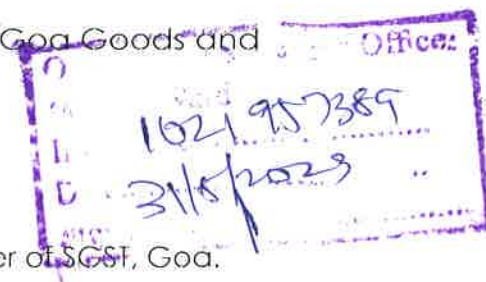 Goa Goods and
Office:
1021957389
31/5/2023
er of SGST, Goa.